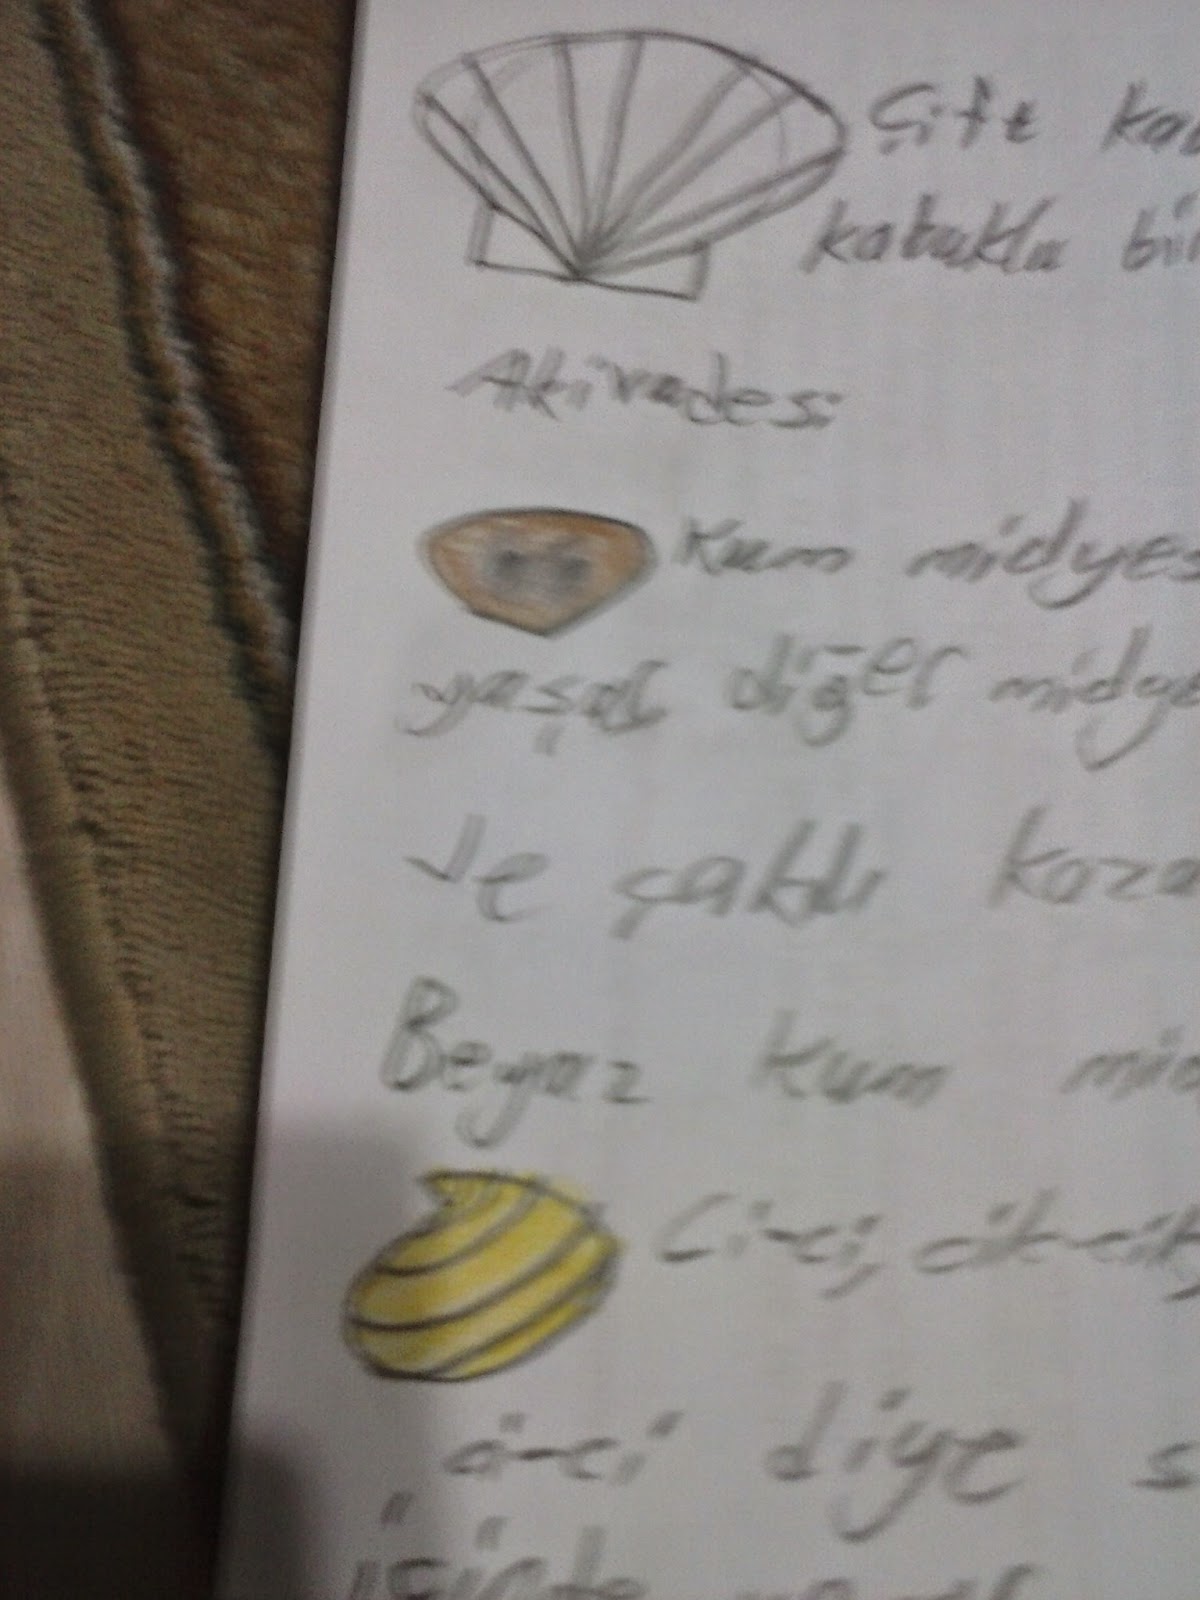 Çift kab
kabuklu bir
Akivadesi
Kum midyes
yaşar diğer midye
ve çakıllı koza
Beyaz kum mid
Ci-ci, cik-cik,
ci-ci diye s
içinde